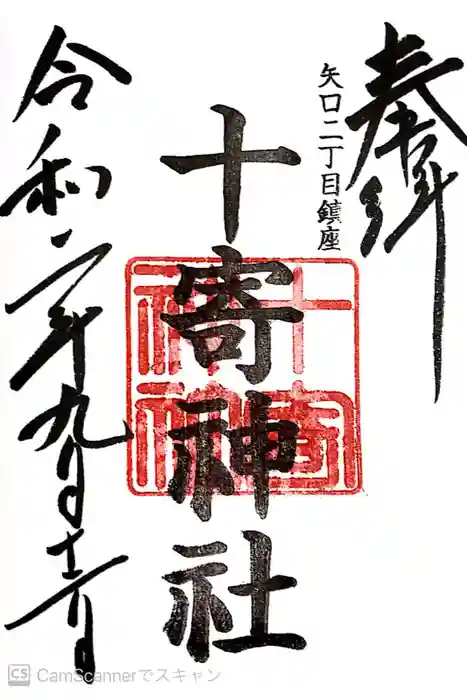 奉拝
矢口二丁目鎮座
十寄神社
十寄
神社
令和二年九月
CS CamScannerでスキャン